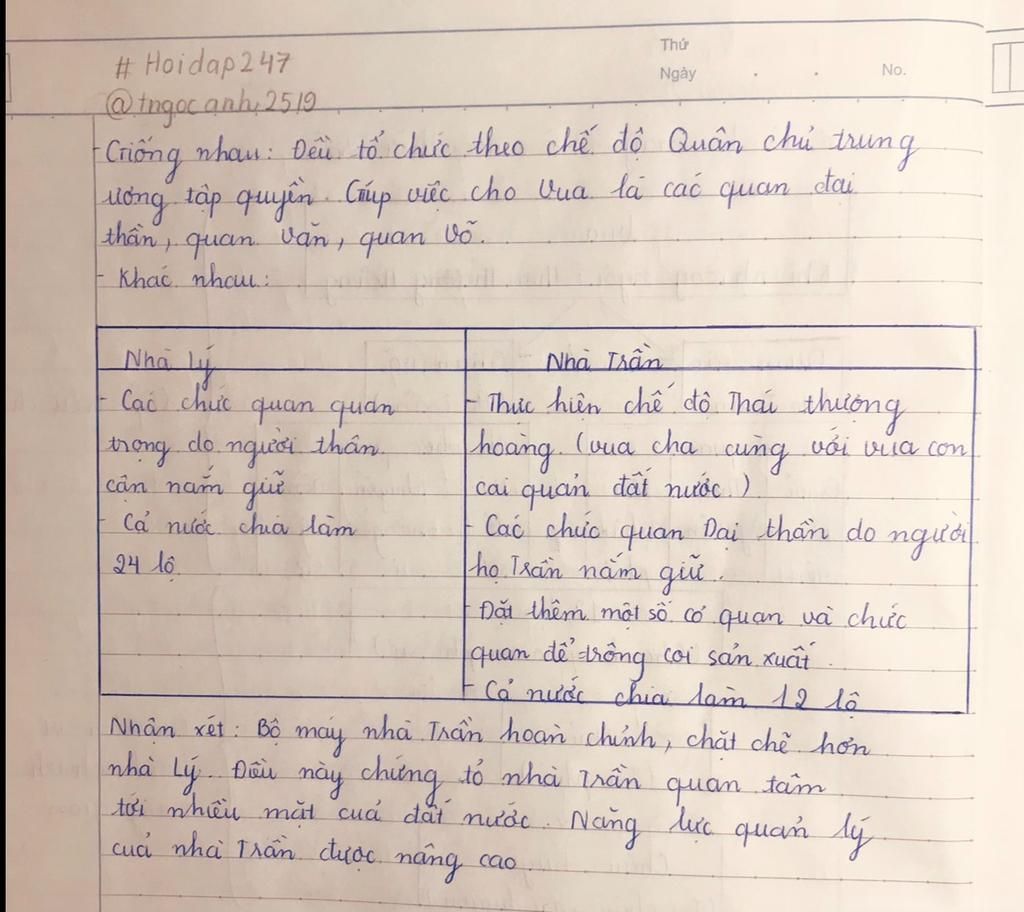 Thứ
Ngày . . No.
# Hoidap247
@tngocanh2519
- Giống nhau: Đều tổ chức theo chế độ Quân chủ trung
ương tập quyền. Giúp việc cho vua là các quan đại
thần, quan văn, quan võ.
- Khác nhau:
Nhà Lý
- Các chức quan quan
trọng do người thân
cận nắm giữ
- Cả nước chia làm
24 lộ
Nhà Trần
- Thực hiện chế độ Thái thượng
hoàng. (vua cha cùng với vua con
cai quản đất nước.)
- Các chức quan Đại thần do người
họ Trần nắm giữ.
- Đặt thêm một số cơ quan và chức
quan để trông coi sản xuất.
- Cả nước chia làm 12 lộ
Nhận xét: Bộ máy nhà Trần hoàn chỉnh, chặt chẽ hơn
nhà Lý. Điều này chứng tỏ nhà Trần quan tâm
tới nhiều mặt của đất nước. Năng lực quản lý
của nhà Trần được nâng cao.